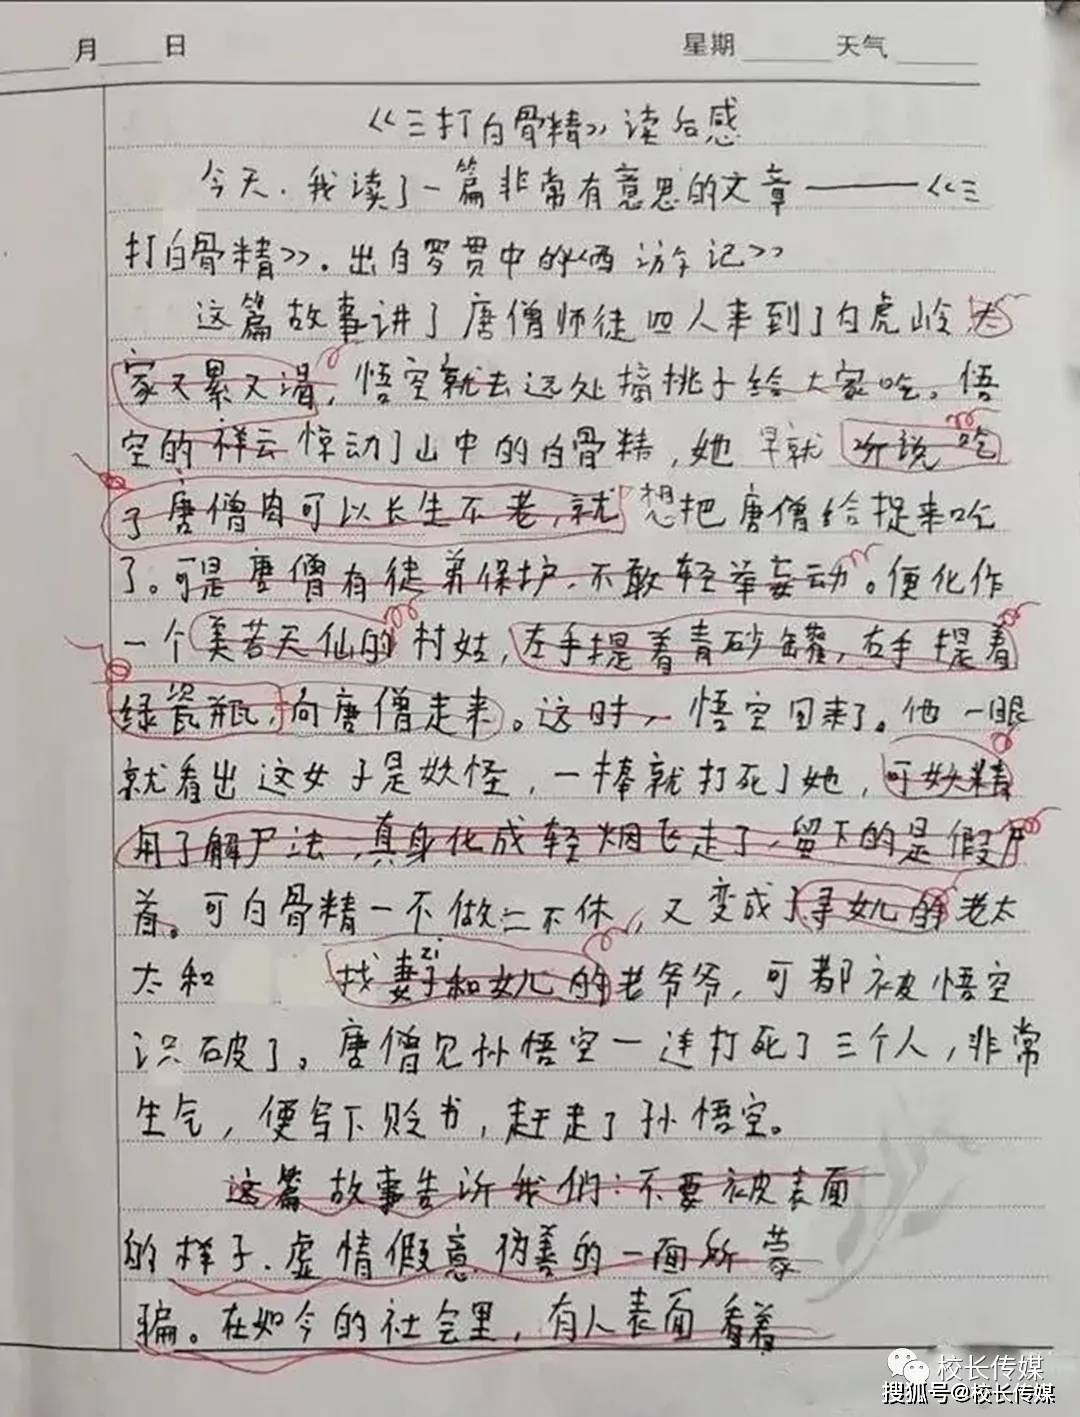 月 日 星期 天气
《三打白骨精》读后感
今天,我读了一篇非常有意思的文章——《三
打白骨精》.出自罗贯中的《西游记》
这篇故事讲了唐僧师徒四人来到了白虎岭,大
家又累又渴,悟空就去远处摘桃子给大家吃。悟
空的祥云惊动了山中的白骨精,她早就听说吃
了唐僧肉可以长生不老,就想把唐僧给捉来吃
了。可是唐僧有徒弟保护.不敢轻举妄动。便化作
一个美若天仙的村姑,左手提着青砂罐,右手提着
绿瓷瓶,向唐僧走来。这时,悟空回来了。他一眼
就看出这女子是妖怪,一棒就打死了她,可妖精
用了解尸法,真身化成轻烟飞走了,留下的是假尸
首。可白骨精一不做二不休,又变成了寻女儿的老太
太和找妻子和女儿的老爷爷,可都被悟空
zi
识破了。唐僧见孙悟空一连打死了三个人,非常
生气,便写下贬书,赶走了孙悟空。
这篇故事告诉我们:不要被表面
的样子.虚情假意伪善的一面所蒙
骗。在如今的社会里,有人表面看着
校长传媒
搜狐号@校长传媒